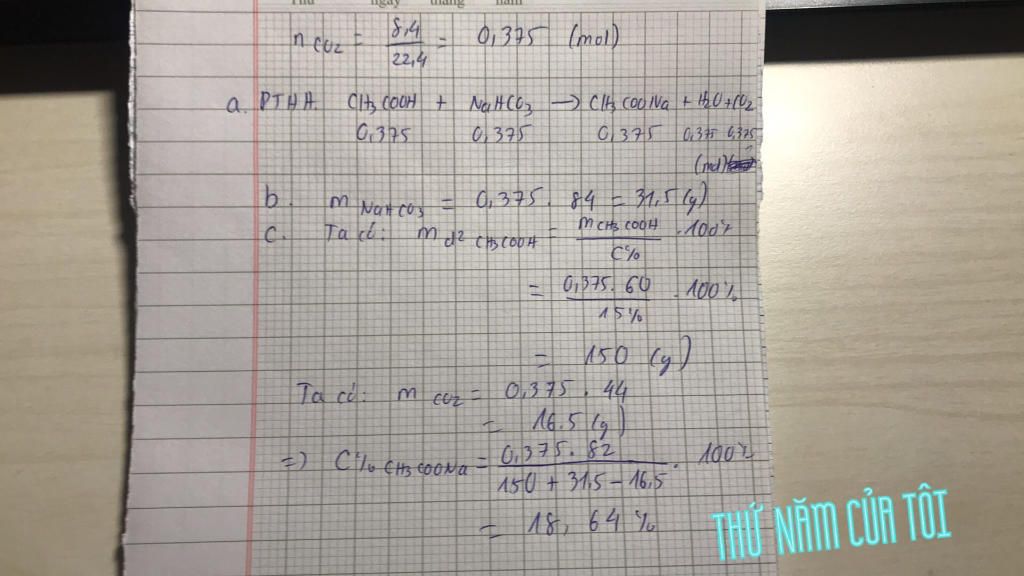 Thứ ngày tháng năm
n CO2 = 8,4 / 22,4 = 0,375 (mol)
a. PTHH CH3COOH + NaHCO3 → CH3COONa + H2O + CO2
0,375 0,375 0,375 0,375 0,375
(mol)
b. m NaHCO3 = 0,375 . 84 = 31,5 (g)
c. Ta có: m d2 CH3COOH = mCH3COOH / C% . 100%
= 0,375.60 / 15% . 100%
= 150 (g)
Ta có: m CO2 = 0,375 . 44
= 16.5 (g)
=) C% CH3COONa = 0,375.82 / 150 + 31,5 - 16,5 . 100%
= 18,64%
THỨ NĂM CỦA TÔI